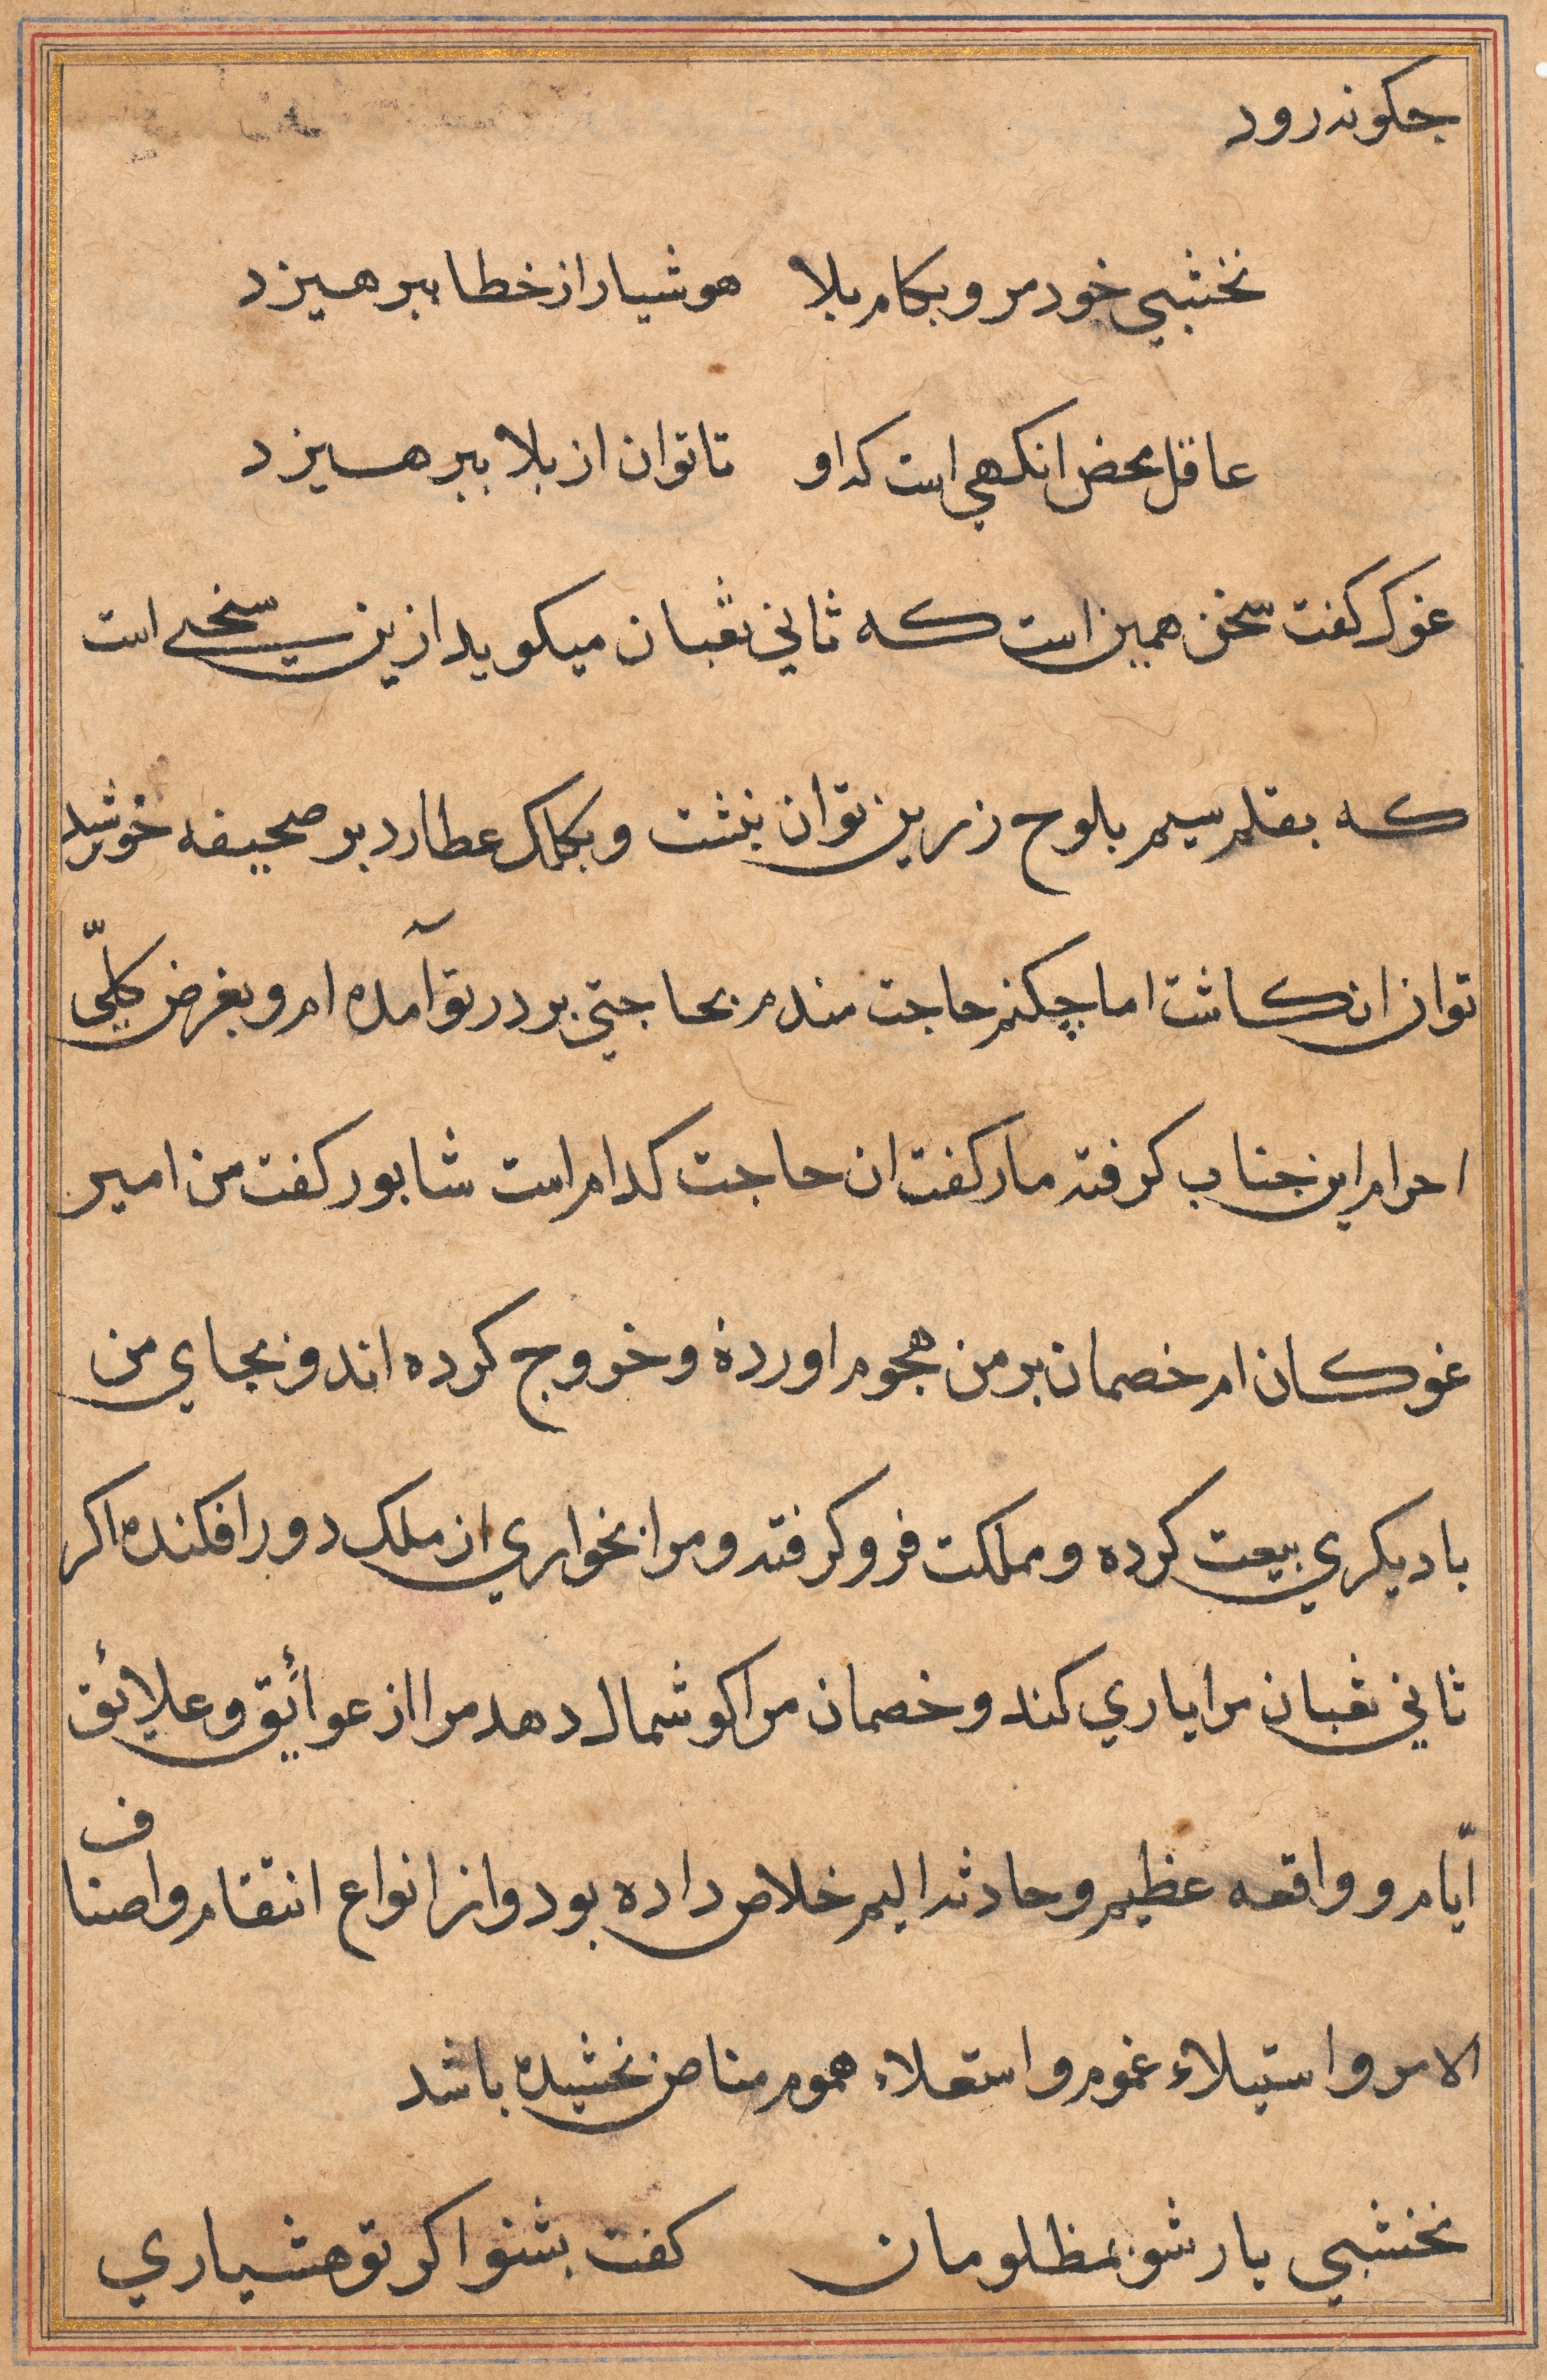 جكونه رود
نخشبي خود مرو بكام بلا هوشيار از خطا ببرهيزد
عاقل محض انكهي است كه او تا توان از بلا ببرهيزد
غوك كفت سخن همين است كه ثاني ثعبان ميكويد ازين سخي است
كه بقلم سيم بلوح زرين توان نبشت و بكلك عطارد بر صحيفه خورشيد
توان انكاشت اما چكنم حاجت مندم بحاجتي بر در تو آمده ام و بغرض كلّي
احرام اين جناب كرفته مار كفت ان حاجت كدام است شابور كفت من امير
غوكان ام خصمان بر من هجوم اورده و خروج كرده اند و بجاي من
با ديكري بيعت كرده و مملكت فرو كرفته و مرا بخواري از ملك دور افكنده اكر
ثاني ثعبان مرا ياري كند و خصمان مرا كوشمال دهد مرا از عوائق و علائق
ايّام و واقعه عظيم و حادثه اليم خلاص داده بود و از انواع انتقام و اصناف
الام و استيلاء غموم و استعلاء هموم مناص بخشيده باشد
نخشبي يار شو بمظلومان كفت بشنو اكر تو هشياري